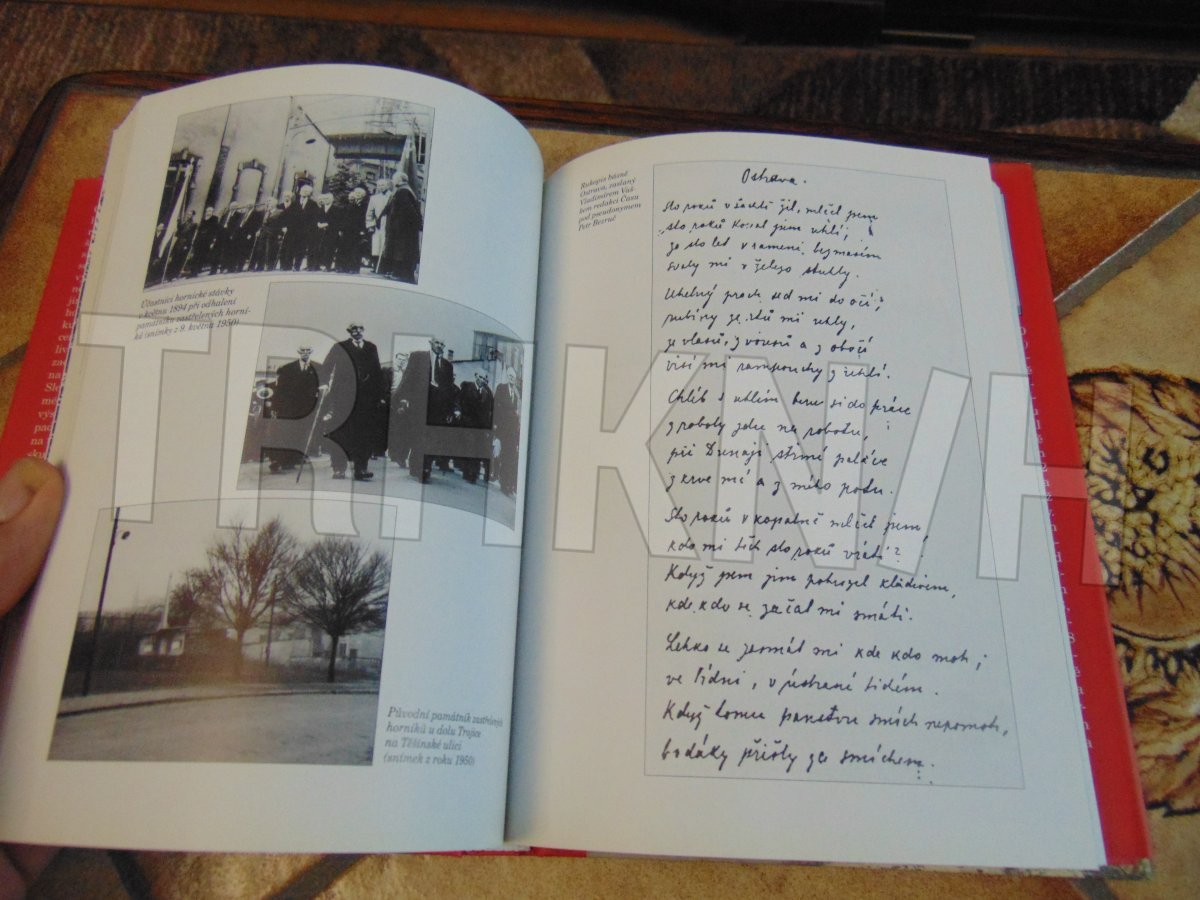 Účastníci hornické stávky
v květnu 1894 při odhalení
památníku zastřelených horní-
ků (snímky z 9. května 1950)
Původní památník zastřelených
horníků u dolu Trojice
na Těšínské ulici
(snímek z roku 1950)
Rukopis básně
Ostrava, zaslaný
Vladimírem Vaš-
kem redakci Času
pod pseudonymem
Petr Bezruč
Ostrava.
Sto roků v šachtě žil, mlčel jsem
sto roků kopal jsem uhlí,
za sto let v rameni bezmasém
svaly mi v železo stuhly.
Uhelný prach sed mi do očí,
rubíny ze rtů mi uhly,
ze vlasů, z vousů a z obočí
visí mi rampouchy z uhlí.
Chléb s uhlím beru si do práce
z roboty jdu na robotu,
při Dunaji strmé paláce
z krve mé a z mého potu.
Sto roků v kopalně mlčel jsem
kdo mi těch sto roků vrátí?
Když jsem jim pohrozel kladivem,
kde kdo se začal mi smáti.
Lehko se zasmát mi kde kdo moh,
ve Vídni, v ústraní tichém.
Když tomu panstvu smích nepomoh,
bodáky přišly za smíchem.
TRHKNIH